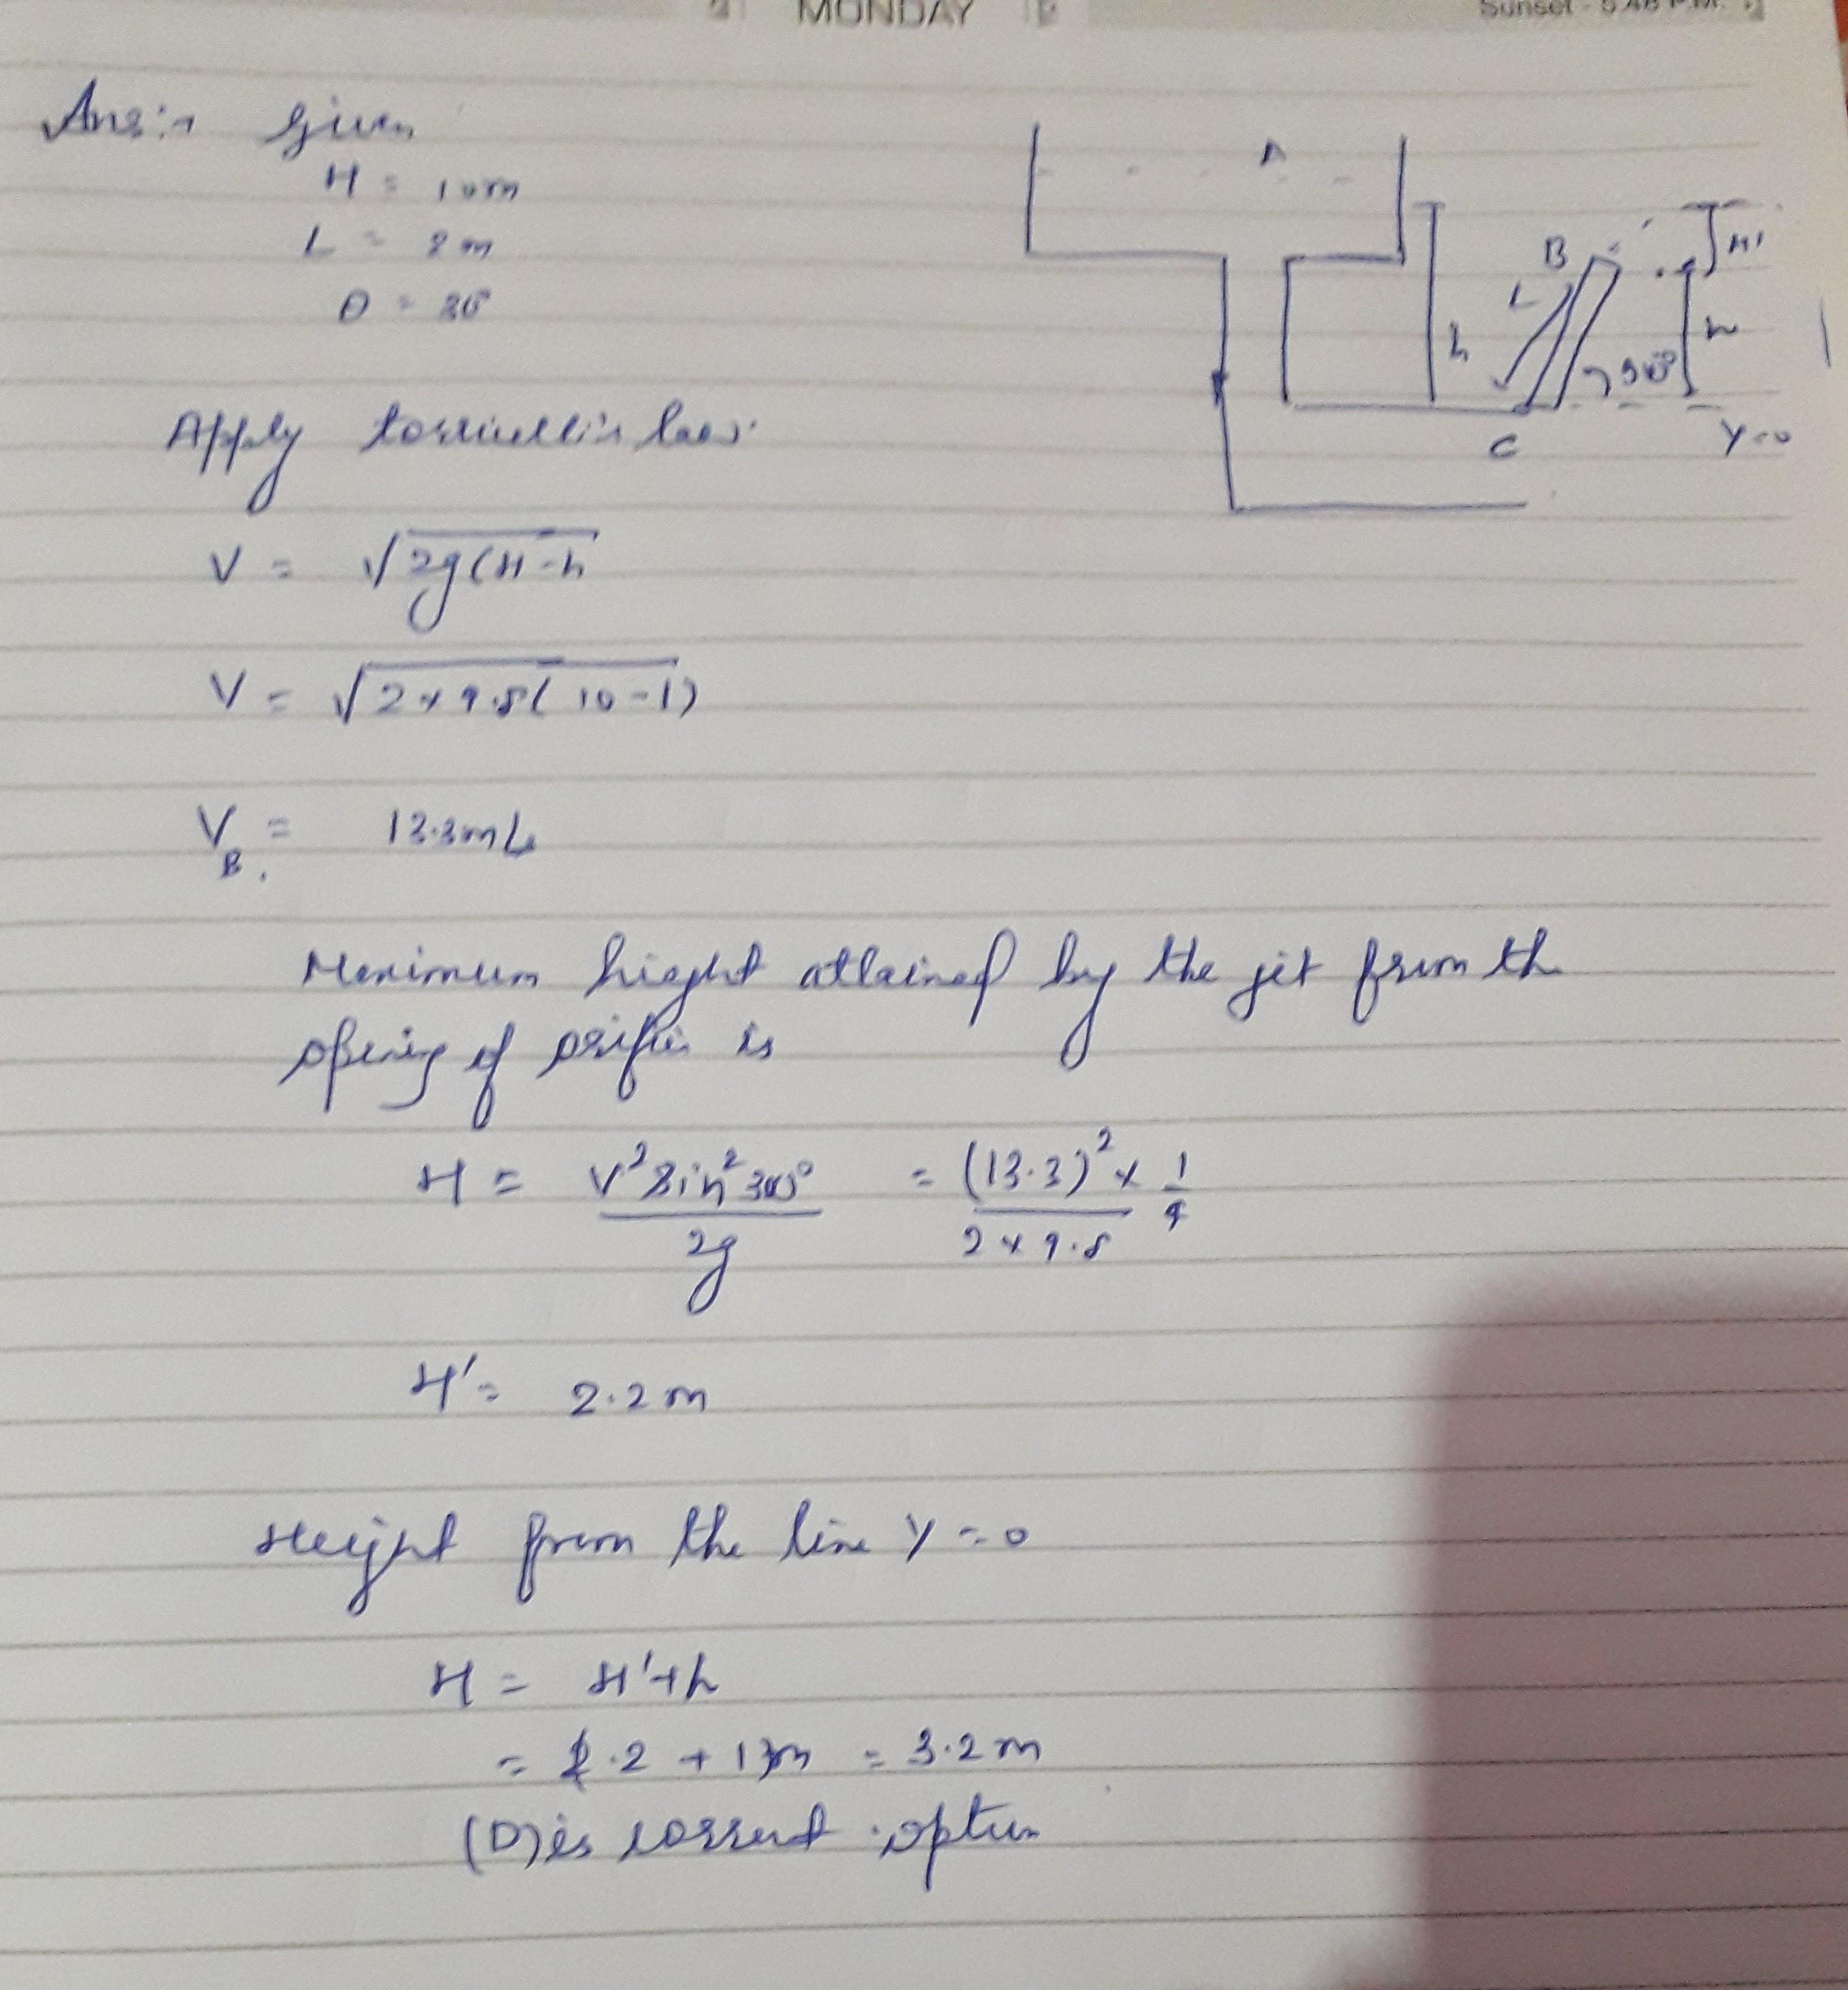 MONDAY
Sunset - 5.48 P.M.
Ans:→ Given
H = 10m
L = 2m
θ = 30°
A
B
L
H'
h
h
30°
C
Y=0
Apply torricelli's law.
V = √2g(H-h
V = √2×9.8(10-1)
V_B = 13.3m/s
Maximum height attained by the jet from th
opening of orifice is
H = V² Sin² 30° / 2g = (13.3)² × 1/4 / 2×9.8
H' = 2.2m
Height from the line Y=0
H = H'+h
= 2.2 + 1)m = 3.2m
(D) is correct option